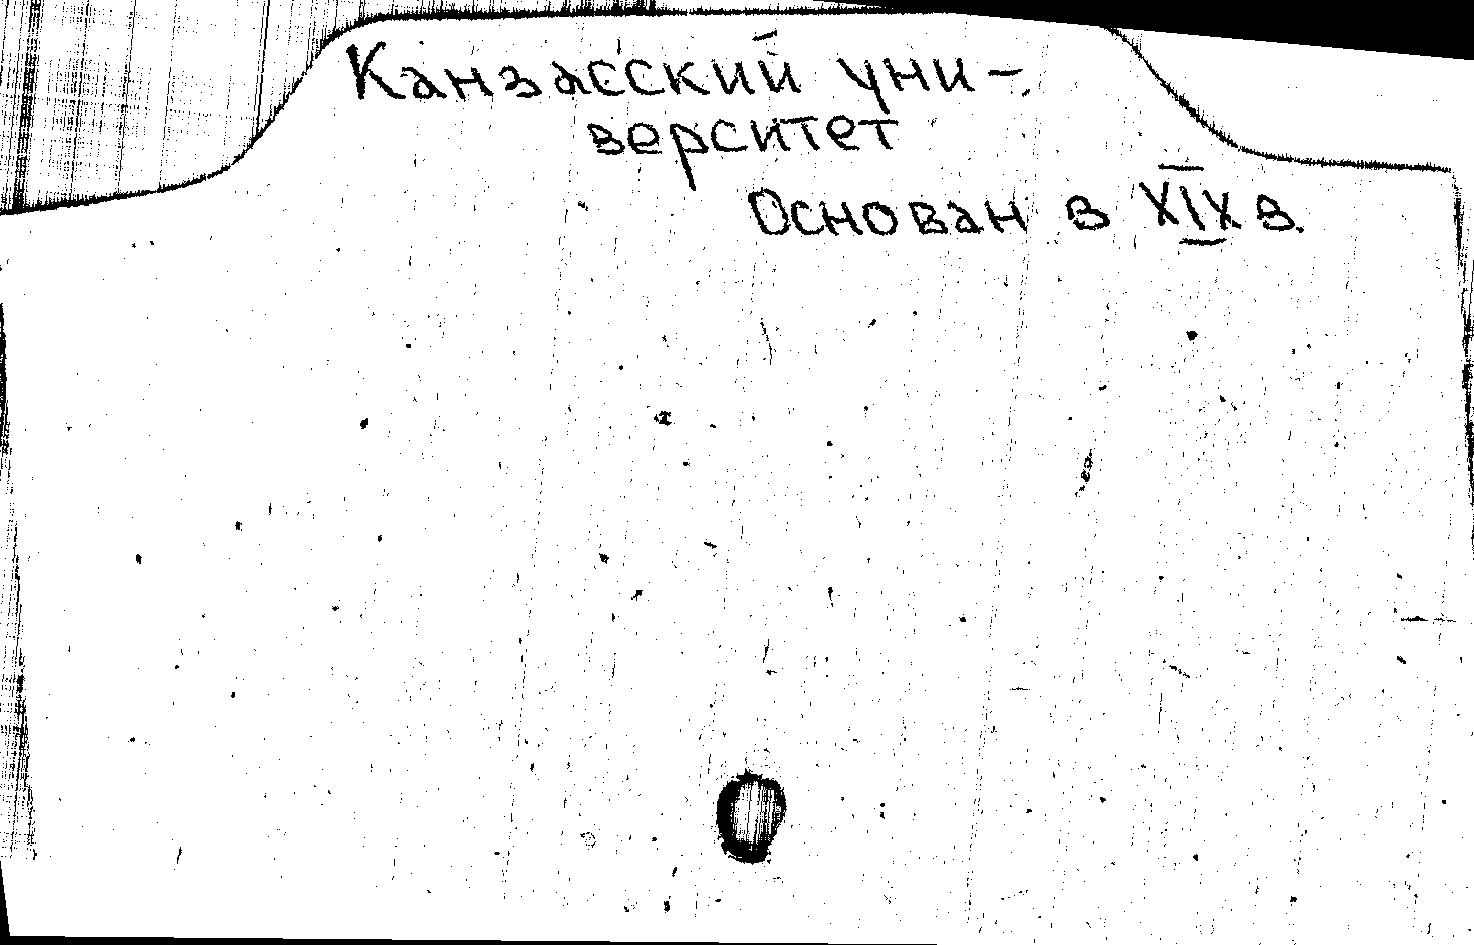 Канзасский уни-
верситет
Основан в XIX в.